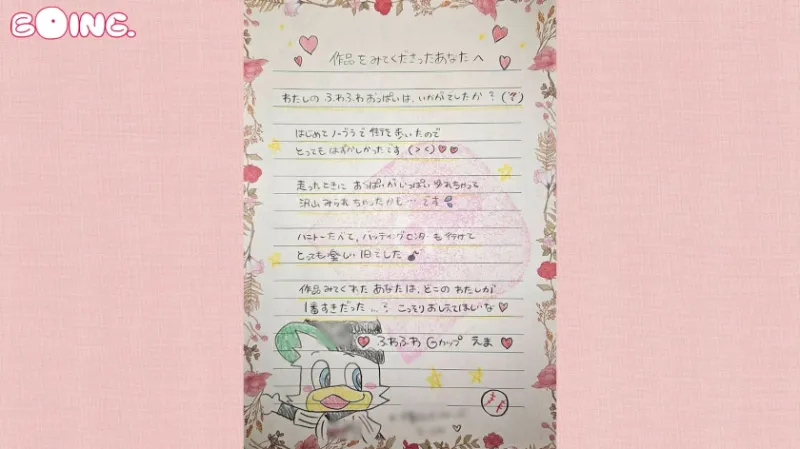 BOING.
作品をみてくださったあなたへ
わたしの ふわふわおっぱいは、いかがでしたか?
はじめてノーブラで 街をあるいたので
とってもはずかしかったです
走ったときに おっぱいがいっぱいゆれちゃって
沢山みられちゃったかも…です
ハニトーたべて、バッティングセンターも行けて
とっても楽しい1日でした
作品みてくれた あなたは、どこの わたしが
1番すきだった…? こっそりおしえてほしいな
ふわふわ Gカップ えま